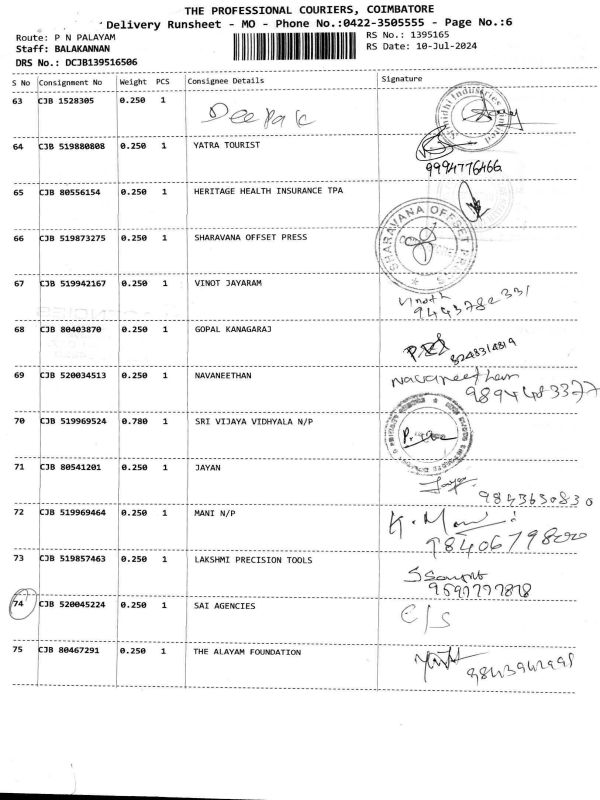 THE PROFESSIONAL COURIERS, COIMBATORE
Delivery Runsheet - MO - Phone No.:0422-3505555 - Page No.:6
Route: P N PALAYAM
RS No.: 1395165
Staff: BALAKANNAN
RS Date: 10-Jul-2024
DRS No.: DCJB139516506
S No Consignment No Weight PCS Consignee Details Signature
63 CJB 1528305 0.250 1 Deepak
64 CJB 519880808 0.250 1 YATRA TOURIST
9994776466
65 CJB 80556154 0.250 1 HERITAGE HEALTH INSURANCE TPA
66 CJB 519873275 0.250 1 SHARAVANA OFFSET PRESS SHARAVANA OFFSET PRESS
67 CJB 519942167 0.250 1 VINOT JAYARAM
Vinoth
9443782331
68 CJB 80403870 0.250 1 GOPAL KANAGARAJ
8248314819
69 CJB 520034513 0.250 1 NAVANEETHAN Navaneethan
70 CJB 519969524 0.780 1 SRI VIJAYA VIDHYALA N/P
71 CJB 80541201 0.250 1 JAYAN
9843630830
72 CJB 519969464 0.250 1 MANI N/P K. Mani
73 CJB 519857463 0.250 1 LAKSHMI PRECISION TOOLS
74 CJB 520045224 0.250 1 SAI AGENCIES C/S
75 CJB 80467291 0.250 1 THE ALAYAM FOUNDATION